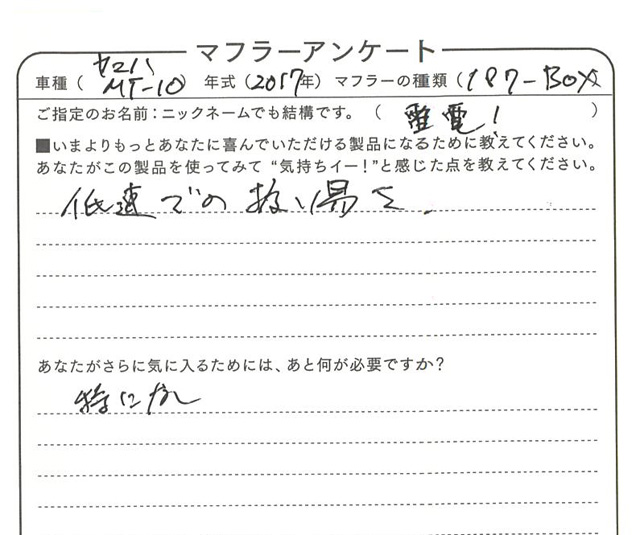 マフラーアンケート
車種（ヤマハ MT-10） 年式（2017年） マフラーの種類（187-BOX）
ご指定のお名前：ニックネームでも結構です。（雷電！）
■いまよりもっとあなたに喜んでいただける製品になるために教えてください。
あなたがこの製品を使ってみて“気持ちイー！”と感じた点を教えてください。
低速での扱い易さ.
あなたがさらに気に入るためには、あと何が必要ですか？
特になし